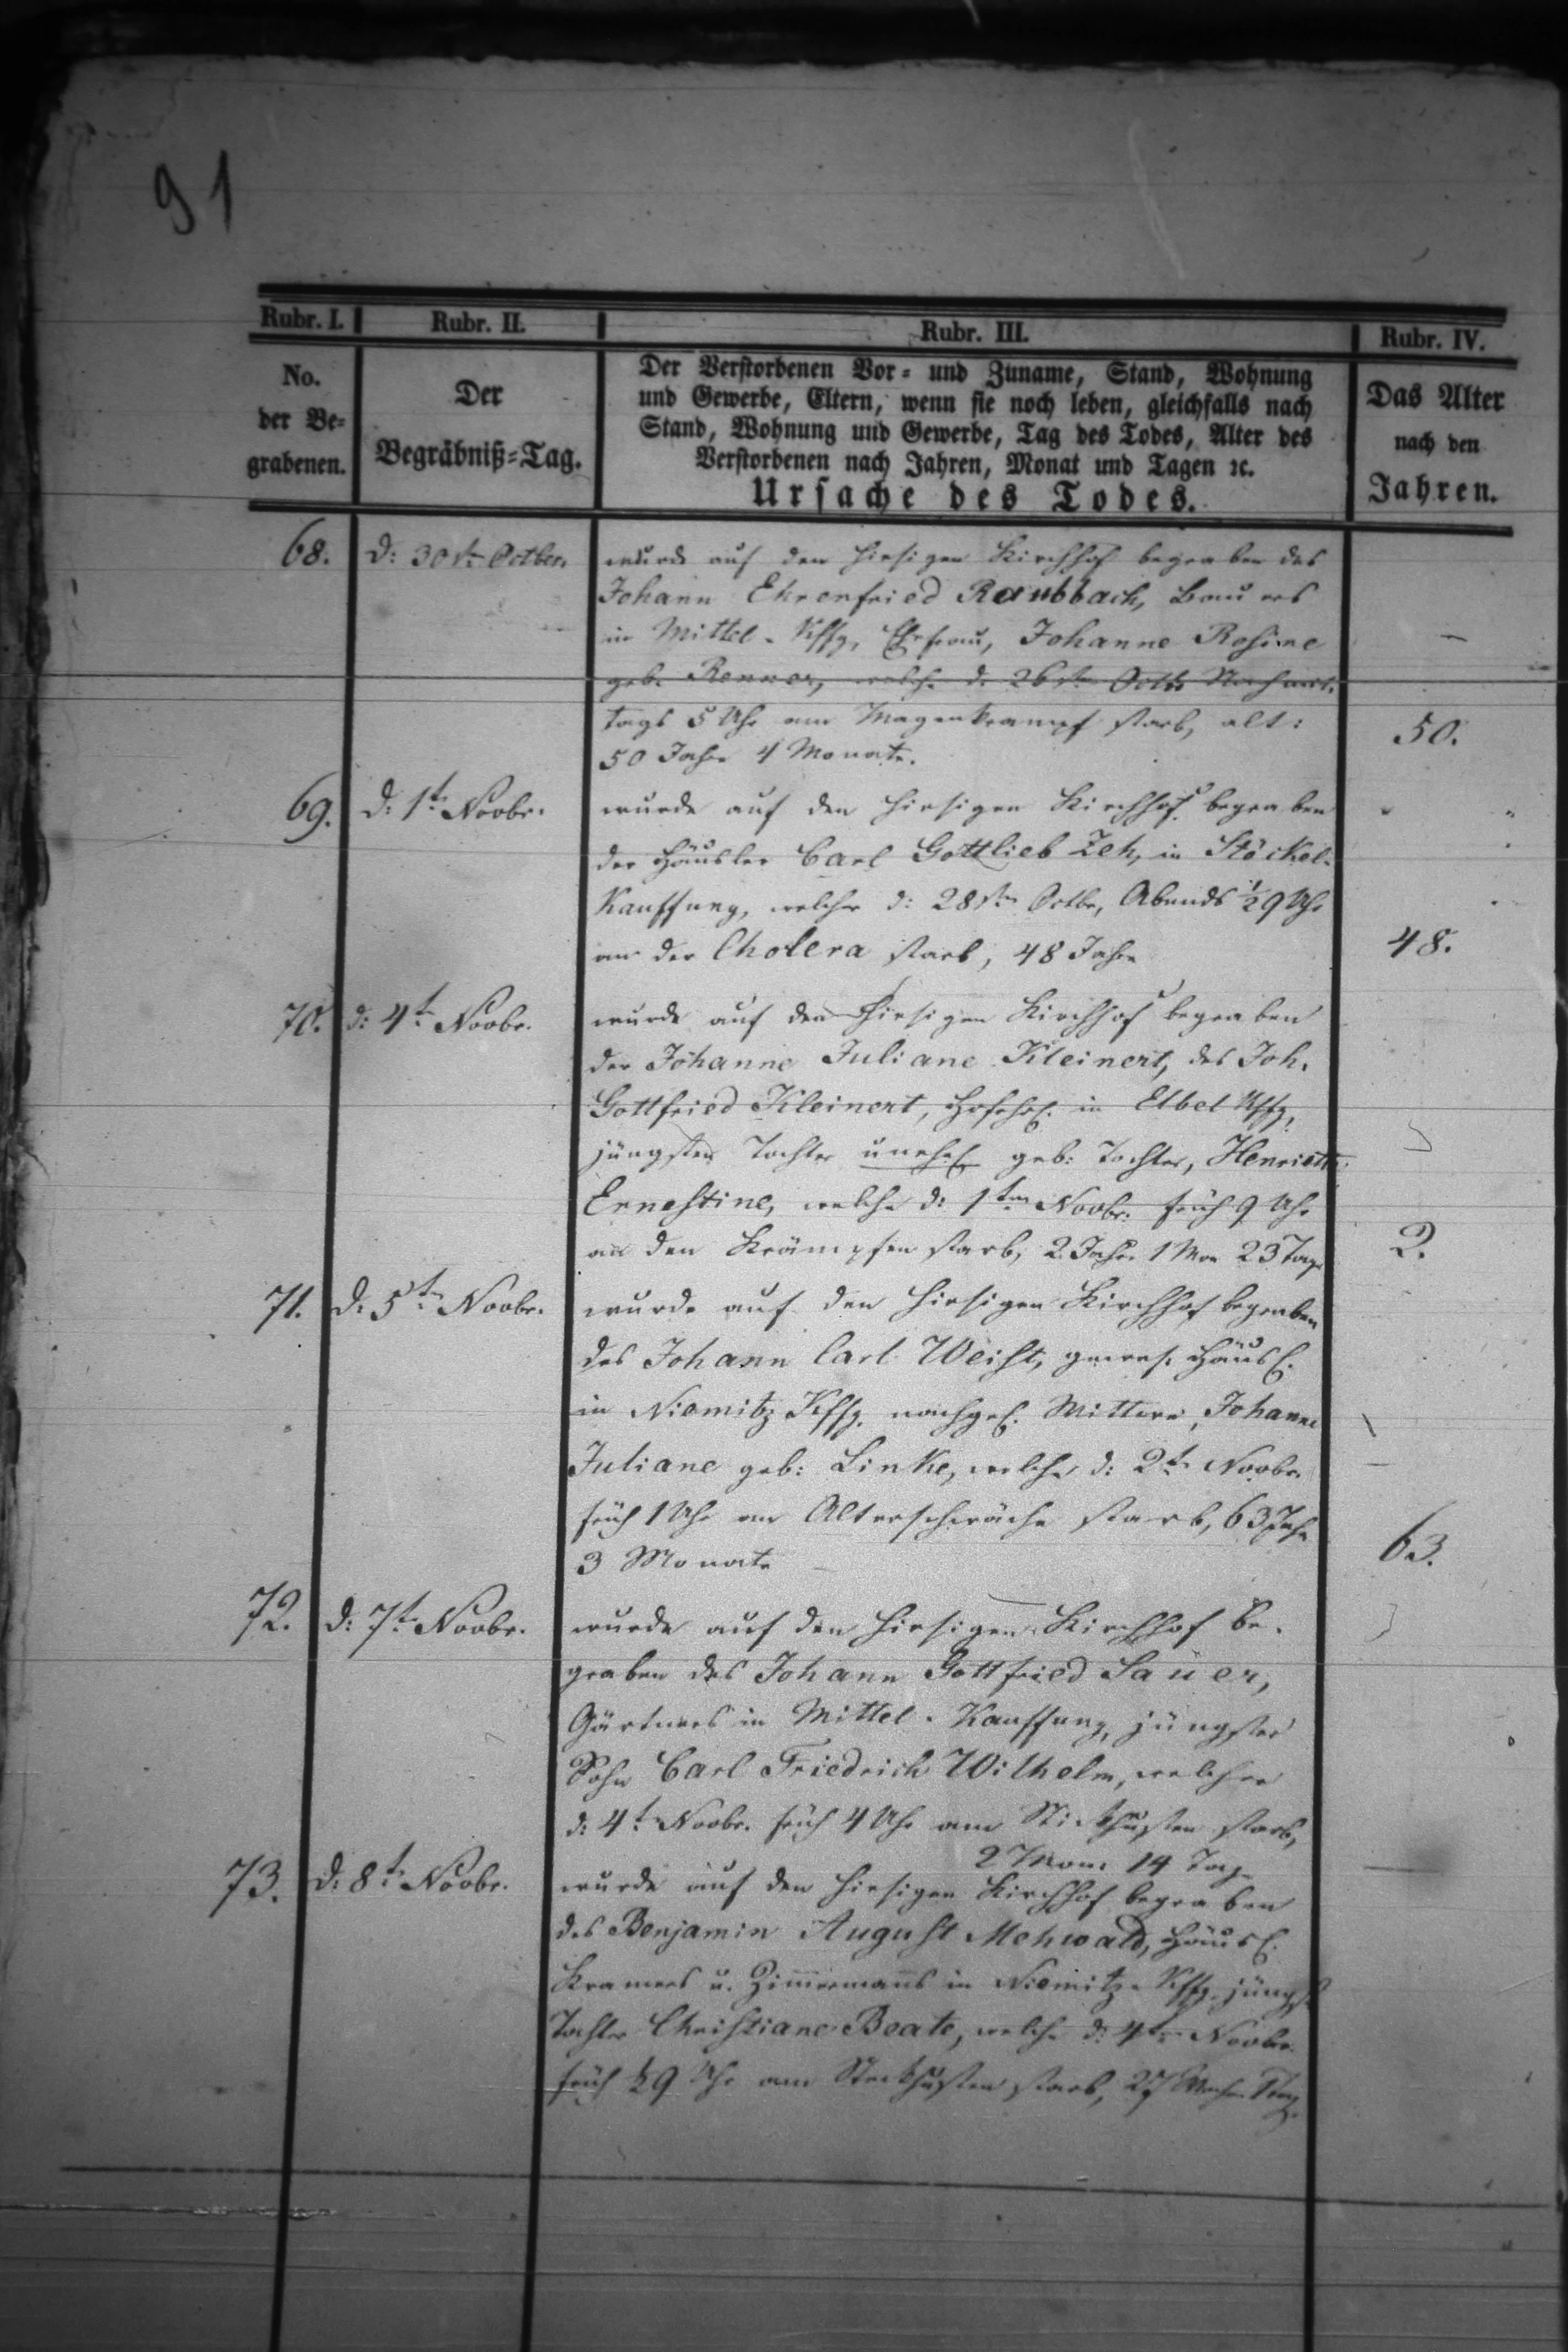 91
Rubr. I. Rubr. II. Rubr. III. Rubr. IV.
No. der Be-grabenen.
Der Begräbniß-Tag.
Der Verstorbenen Vor- und Zuname, Stand, Wohnung
und Gewerbe, Eltern, wenn sie noch leben, gleichfalls nach
Stand, Wohnung und Gewerbe, Tag des Todes, Alter des
Verstorbenen nach Jahren, Monat und Tagen ꝛc.
Ursache des Todes.
Das Alter
nach den
Jahren.
68. d: 30st. Octber. wurde auf den hiesigen Kirchhof begraben des
Johann Ehrenfried Raubbach, Bauers
in Mittel-Kffg, Ehefrau, Johanne Rosine
geb. Renner, welche d. 26st. Octb. Nachmit.
tags 5 Uhr am Magenkrampf starb, alt:
50 Jahr 4 Monate. 50.
69. d: 1t. Novbr. wurde auf den hiesigen Kirchhof begraben
der Häusler Carl Gottlieb Zeh, in Stöckel-
Kauffung, welcher d: 28st. Octbr, Abends ½9 Uhr
an der Cholera starb, 48 Jahr 48.
70. d: 4t. Novbr. wurde auf den hiesigen Kirchhof begraben
der Johanne Juliane Kleinert, des Joh.
Gottfried Kleinert, in Elbel Kffg,
jüngsten Tochter unehel. geb: Tochter, Henriette
Ernestine, welche d: 1ten Novbr: früh 9 Uhr
an den Krämpfen starb, 2 Jahr 1 Mon 23 Tage 2.
71. d: 5t. Novbr. wurde auf den hiesigen Kirchhof begraben
des Johann Carl Weist, gewes. Häusl.
in Niemitz Kffg. nachgel. Wittwe, Johanne
Juliane geb: Linke, welche d: 2t. Novbr.
früh 1 Uhr an Altersschwäche starb, 63 Jahr
3 Monate 63.
72. d: 7t. Novbr. wurde auf den hiesigen Kirchhof be-
graben des Johann Gottfried Sauer,
Gärtners in Mittel-Kauffung, jüngster
Sohn Carl Friedrich Wilhelm, welcher
d: 4t. Novbr. früh 4 Uhr am Stickhusten starb,
2 Mon: 14 Tag
73. d: 8t. Novbr. wurde auf den hiesigen Kirchhof begraben
des Benjamin August Mehwald, Häusl.
Kramers u. Zimmermanns in Niemitz-Kffg. jüngst
Tochter Christiane Beate, welche d: 4t. Novbr.
früh ½9 Uhr am Stickhusten starb,